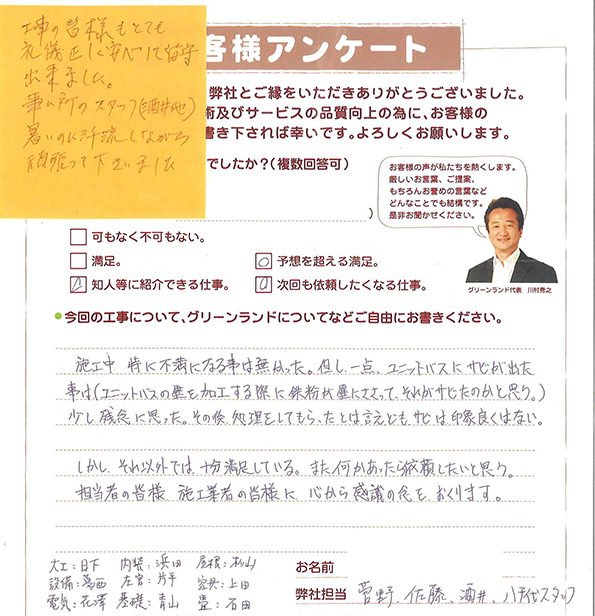 工事の皆様もとても
礼儀正しく安心して留守
出来ました。
事ム所のスタッフ(酒井他)
暑いのに汗流しながら
頑張って下さいました
客様アンケート
弊社とご縁をいただきありがとうございました。
術及びサービスの品質向上の為に、お客様の
書き下されば幸いです。よろしくお願いします。
でしたか?(複数回答可)
)
お客様の声が私たちを熱くします。
厳しいお言葉、ご提案、
もちろんお誉めの言葉など
どんなことでも結構です。
是非お聞かせください。
グリーンランド代表 川村秀之
可もなく不可もない。
満足。
予想を超える満足。
知人等に紹介できる仕事。
次回も依頼したくなる仕事。
●今回の工事について、グリーンランドについてなどご自由にお書きください。
施工中 特に不満になる事は無かった。但し、一点、ユニットバスにサビが出た
事は(ユニットバスの壁を加工する際に鉄粉が壁にささって、それがサビたのかと思う。)
少し残念に思った。その後、処理をしてもらったとは言えども、サビは印象良くはない。
しかし、それ以外では、十分満足している。また何かあったら依頼したいと思う。
担当者の皆様 施工業者の皆様に、心から感謝の念を、おくります。
大工:日下 内装:浜田 屋根:杉山
設備:葛西 左官:片平 家具:上田
電気:花澤 基礎:青山 畳:石田
お名前
弊社担当 菅野、佐藤、酒井、八千代スタッフ